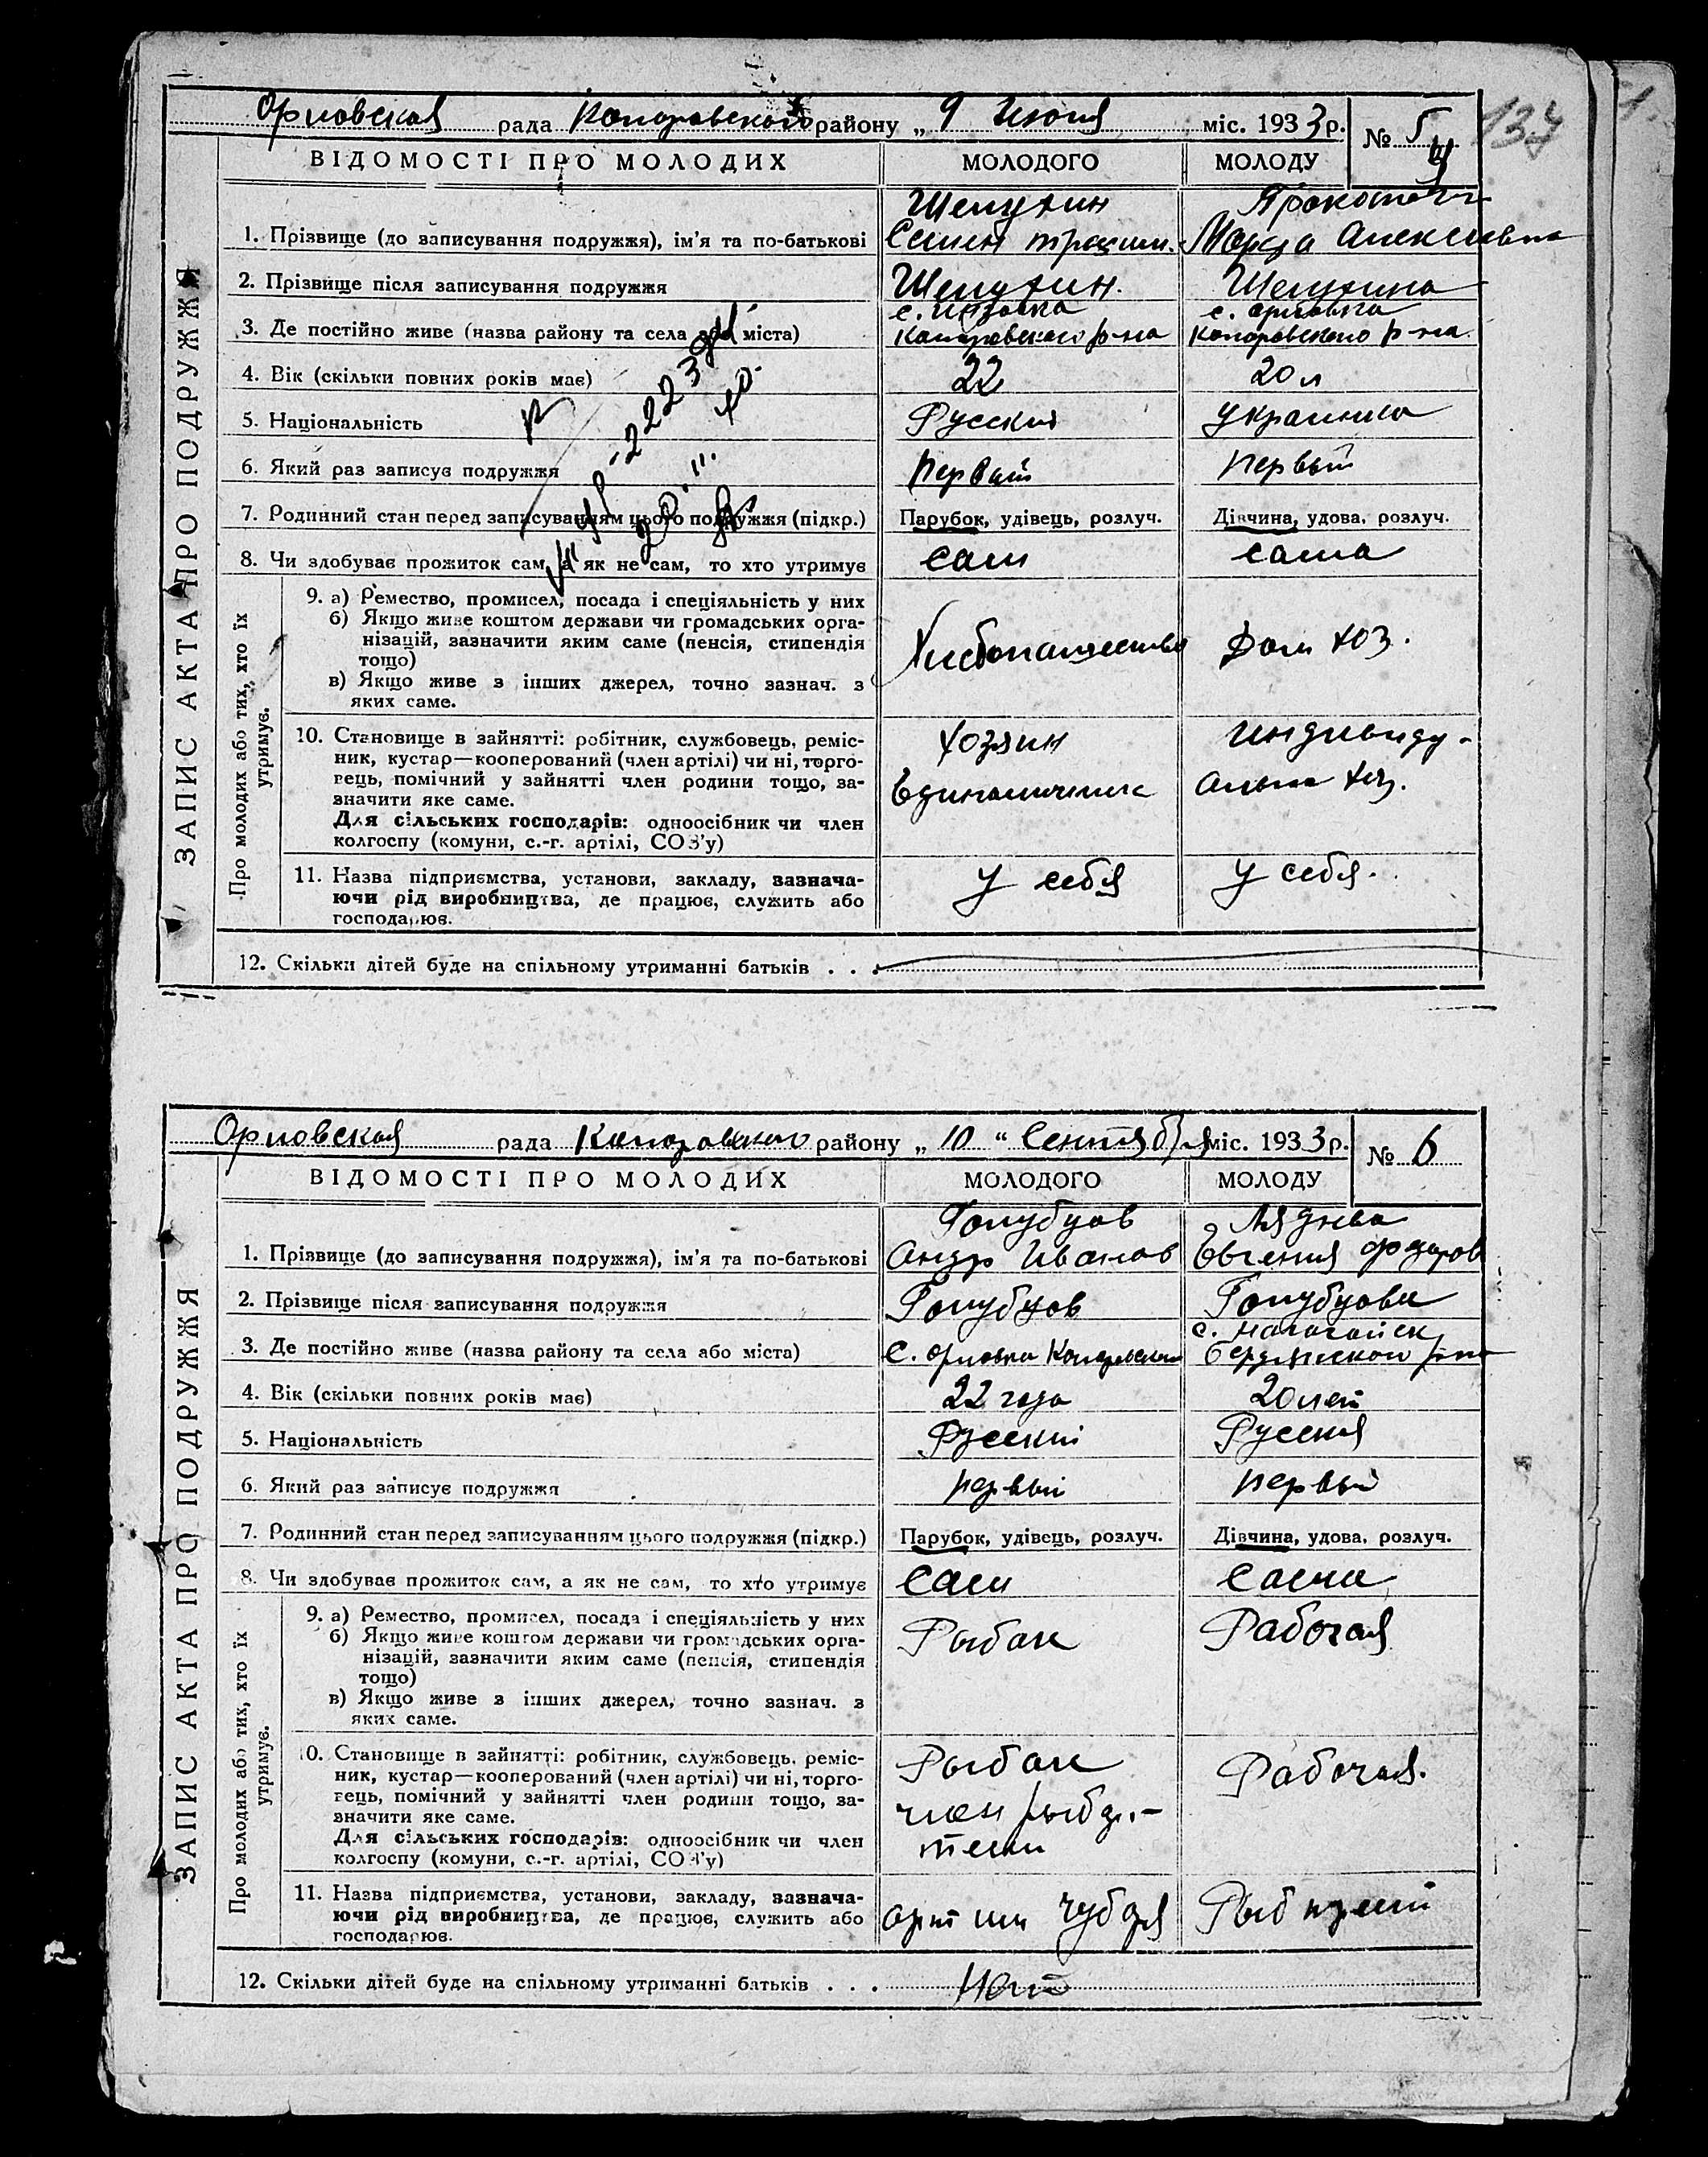 137
Орловская рада Коларовского району „ 9 Июня міс. 1933 р. № 5
ВІДОМОСТІ ПРО МОЛОДИХ МОЛОДОГО МОЛОДУ
ЗАПИС АКТА ПРО ПОДРУЖЖЯ
1. Прізвище (до записування подружжя), ім'я та по-батькові
Шелухин
Семен
Алексеевна
2. Прізвище після записування подружжя Шелухин. Шелухина
3. Де постійно живе (назва району та села або міста)
Коларовского р-на
с. Орловка
Коларовского р-на.
4. Вік (скільки повних років має) 22 20 л
5. Національність Русский Украинка
6. Який раз записує подружжя Первый Первый
7. Родинний стан перед записуванням цього подружжя (підкр.) Парубок, удівець, розлуч. Дівчина, удова, розлуч.
8. Чи здобуває прожиток сам, а як не сам, то хто утримує сам сама
Про молодих або тих, хто їх утримує.
9. а) Ремество, промисел, посада і спеціяльність у них
б) Якщо живе коштом держави чи громадських орга-
нізацій, зазначити яким саме (пенсія, стипендія
тощо)
в) Якщо живе з інших джерел, точно зазнач. з
яких саме.
Хлебопашество Дом хоз.
10. Становище в зайнятті: робітник, службовець, реміс-
ник, кустар—кооперований (член артілі) чи ні, торго-
вець, помічний у зайнятті член родини тощо, за-
значити яке саме.
Для сільських господарів: одноосібник чи член
колгоспу (комуни, с.-г. артілі, СОЗ'у)
Хозяин
Единоличник
Индивиду-
альн хоз.
11. Назва підприємства, установи, закладу, зазнача-
ючи рід виробництва, де працює, служить або
господарює.
У себя У себя.
12. Скільки дітей буде на спільному утриманні батьків . . .
Орловская рада Коларовского району „ 10 “ Сентября міс. 1933 р. № 6
ВІДОМОСТІ ПРО МОЛОДИХ МОЛОДОГО МОЛОДУ
ЗАПИС АКТА ПРО ПОДРУЖЖЯ
1. Прізвище (до записування подружжя), ім'я та по-батькові
Голубцов
Андр Иванов
Евгения Федоров
2. Прізвище після записування подружжя Голубцов Голубцова
3. Де постійно живе (назва району та села або міста)
с. Орловка Коларовского
с. Ногайск
Бердянского р-на
4. Вік (скільки повних років має) 22 года 20 лет
5. Національність Русский Русская
6. Який раз записує подружжя первый первый
7. Родинний стан перед записуванням цього подружжя (підкр.) Парубок, удівець, розлуч. Дівчина, удова, розлуч.
8. Чи здобуває прожиток сам, а як не сам, то хто утримує сам сама
Про молодих або тих, хто їх утримує.
9. а) Ремество, промисел, посада і спеціяльність у них
б) Якщо живе коштом держави чи громадських орга-
нізацій, зазначити яким саме (пенсія, стипендія
тощо)
в) Якщо живе з інших джерел, точно зазнач. з
яких саме.
Рыбак Рабочая
10. Становище в зайнятті: робітник, службовець, реміс-
ник, кустар—кооперований (член артілі) чи ні, торго-
вець, помічний у зайнятті член родини тощо, за-
значити яке саме.
Для сільських господарів: одноосібник чи член
колгоспу (комуни, с.-г. артілі, СОЗ'у)
Рыбак
член
Рабочая.
11. Назва підприємства, установи, закладу, зазнача-
ючи рід виробництва, де працює, служить або
господарює.
12. Скільки дітей буде на спільному утриманні батьків . . . Нет